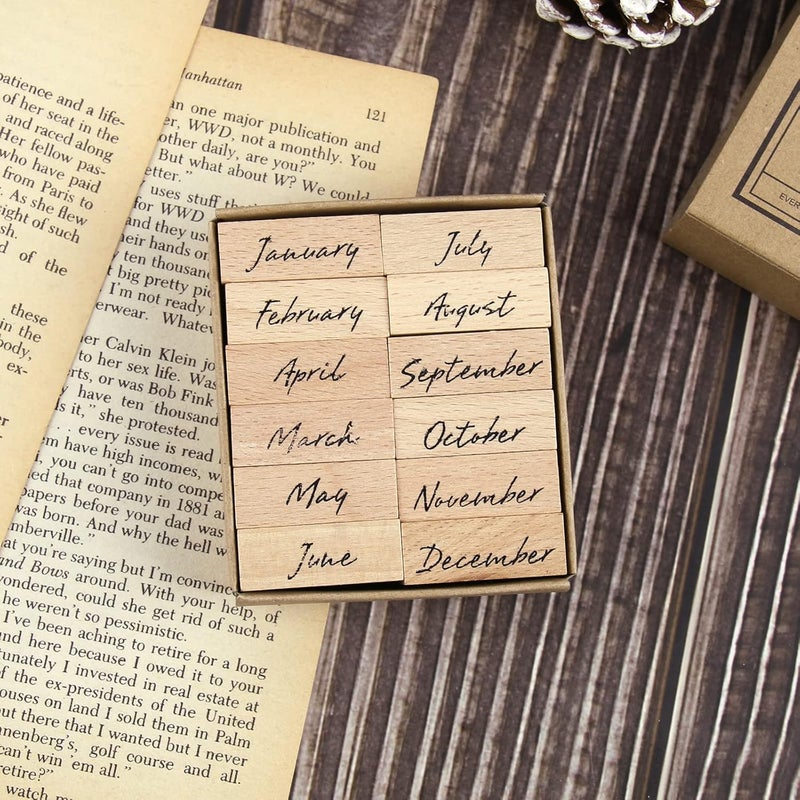 patience and a life-
of her seat in the
and raced along
Her fellow pas-
who have paid
from Paris to
. As she flew
ight of such
sh.
d of the
these
in the
body,
ex-
Manhattan
121
an one major publication and
er, WWD, not a monthly. You
other daily, are you?"
But what about W? We could
etter."
uses stuff
for WWD
and they us
eir hands on
ten thousand
big pretty pic
I'm not ready
erwear. Whatev
er Calvin Klein jo
to her sex life. Was
rts, or was Bob Fink
have ten thousand
ls it," she protested.
. . . every issue is read
m have high incomes, wh
, you can't go into compe
ed that company in 1881 a
papers before your dad was
was born. And why the hell w
mberville."
at you're saying but I'm convinc
and Bows around. With your help, of
wondered, could she get rid of such a
he weren't so pessimistic.
I've been aching to retire for a long
nd here because I owed it to your
tunately I invested in real estate at
of the ex-presidents of the United
ouses on land I sold them in Palm
ut there that I wanted but I never
nnenberg's, golf course and all.
can't win 'em all."
retire?"
watch my
January
February
April
March
May
June
July
August
September
October
November
December
EVER